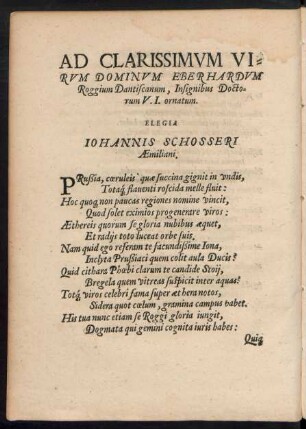 AD CLARISSIMVM VI-
RVM DOMINVM EBERHARDVM
Roggium Dantiscanum, Insignibus Docto-
rum V. I. ornatum.
ELEGIA
IOHANNIS SCHOSSERI
Æmiliani.
PRussia, cæruleis quæ succina gignit in vndis,
Totaq́; flauenti roscida melle fluit:
Hoc quoq; non paucas regiones nomine vincit,
Quod solet eximios progenerare viros:
Æthereis quorum se gloria nubibus æquet,
Et radijs toto luceat orbe suis,
Nam quid ego referam te facundissime Iona,
Inclyta Prussiaci quem colit aula Ducis?
Quid cithara Phœbi clarum te candide Stoij,
Bregela quem vitreas suspicit inter aquas?
Totq́; viros celebri fama super æthera notos,
Sidera quot cœlum, gramina campus habet.
His tua nunc etiam se Roggi gloria iungit,
Dogmata qui gemini cognita iuris habes:
Quiq́;